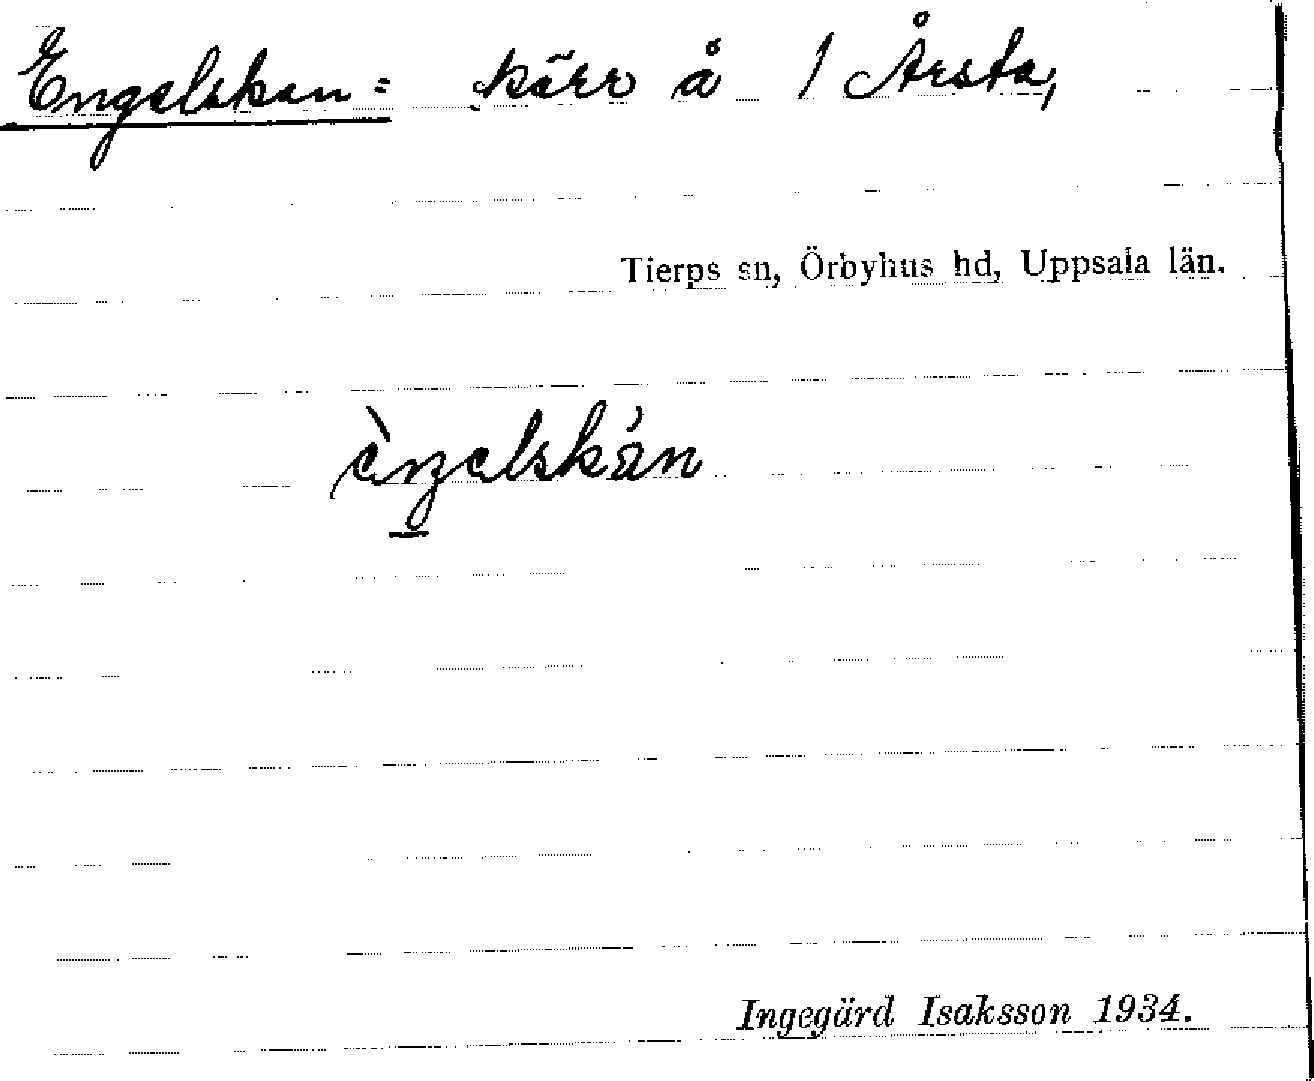 Engelskan = kärr å 1 Årsta,
Tierps sn, Örbyhus hd, Uppsala län.
Ingegärd Isaksson 1934.